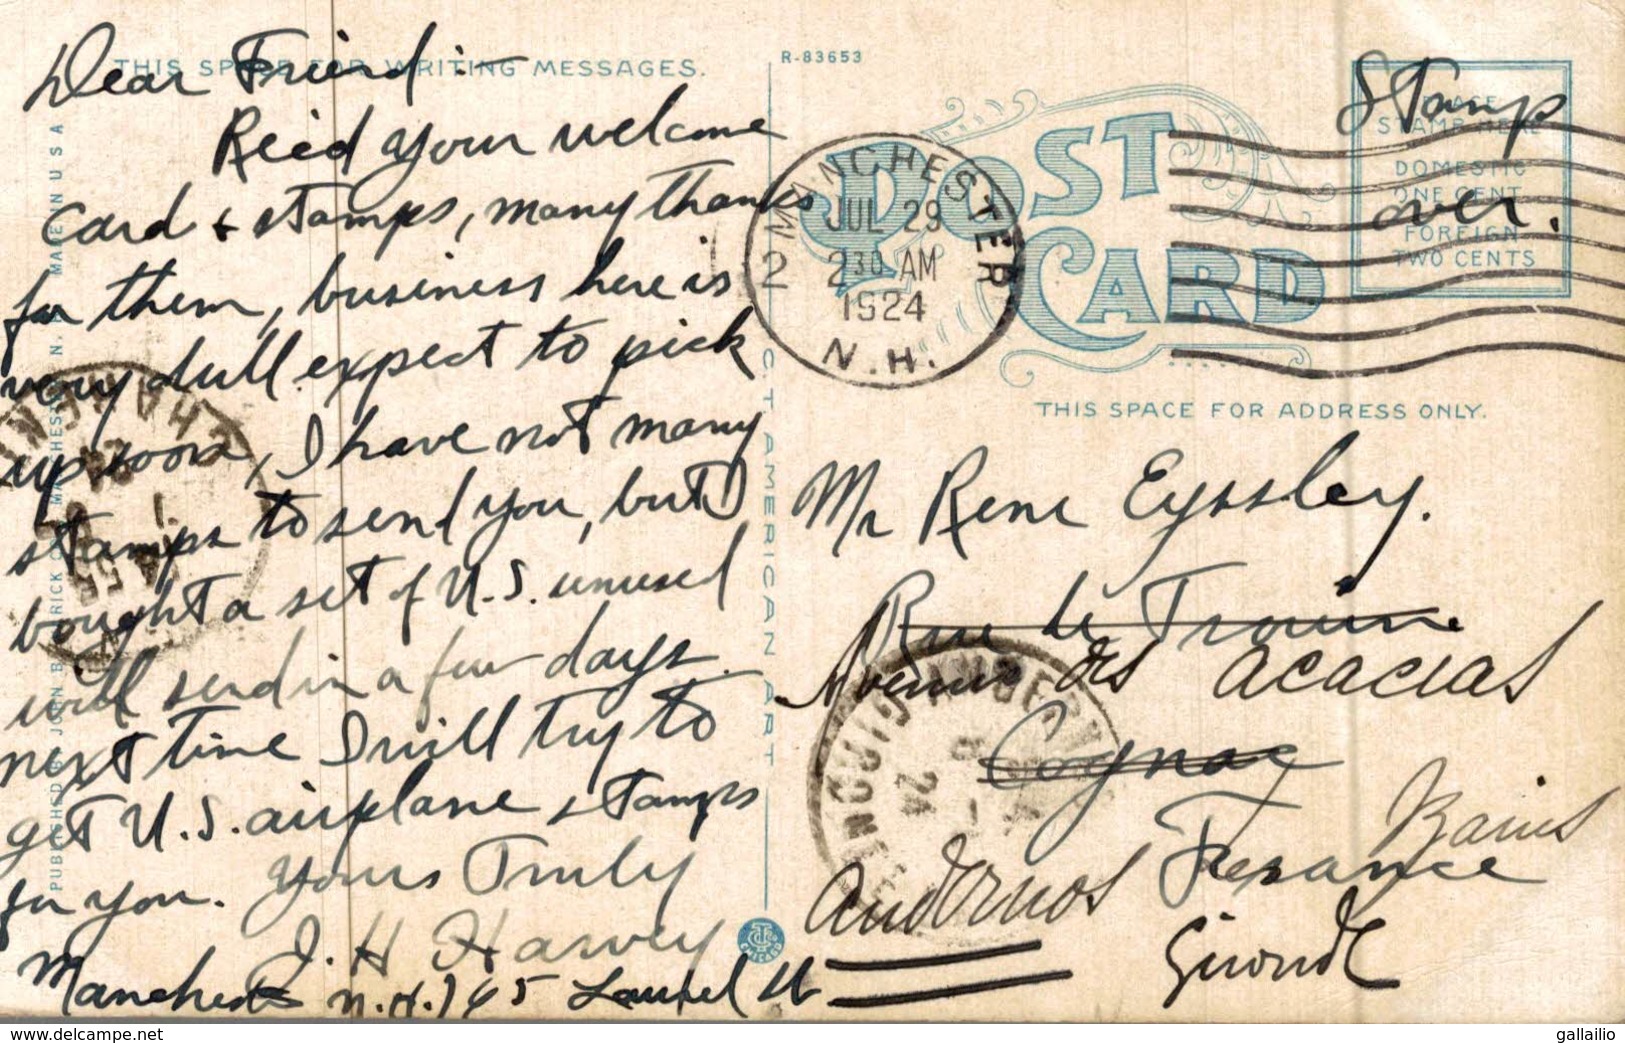 THIS SPACE FOR WRITING MESSAGES.
Dear Friend :-
Recd your welcome
card & stamps, many thanks
for them, business here is
very dull. expect to pick
up soon, I have not many
stamps to send you, but I
bought a set of U.S. unused
will send in a few days.
next time I will try to
get U.S. airplane stamps
for you. Yours Truly
J. H Harvey
Manchester N.H. 145 Laurel St
R-83653
POST CARD
MANCHESTER
JUL 29
2 2 30 AM
1924
N.H.
PLACE
STAMP HERE
DOMESTIC
ONE CENT
FOREIGN
TWO CENTS
Stamp
over.
THIS SPACE FOR ADDRESS ONLY.
Mr Rene Eyssley.
Rue de
Avenue des Acacias
Cognac
France
Andernos Bains
Gironde
CT AMERICAN ART
CHICAGO
gallailio